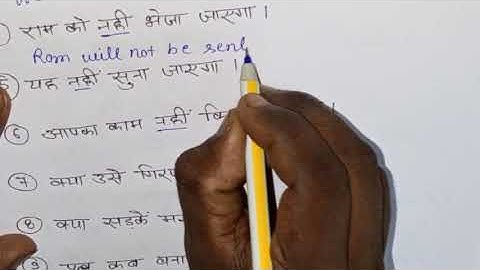 राम को नहीं भेजा जाएगा ।
Ram will not be sent
यह नहीं सुना जाएगा ।
⑥ आपका काम नहीं
⑦ क्या उसे
⑧ क्या सड़कें
⑨ कब